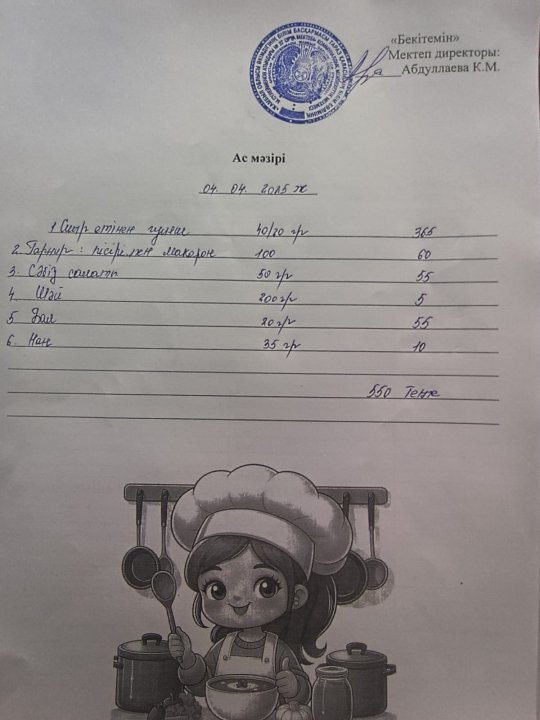 «Бекітемін»
Мектеп директоры:
Абдуллаева К.М.
Ас мәзірі
04. 04. 2025 ж
1 Сиыр етінен гуляш 40/20 гр 365
2. Гарнир: пісірілген макарон 100 60
3. Сәбіз салаты 50 гр 55
4. Шәй 200 гр 5
5 20 гр 55
6. Нан 35 гр 10
550 Теңге